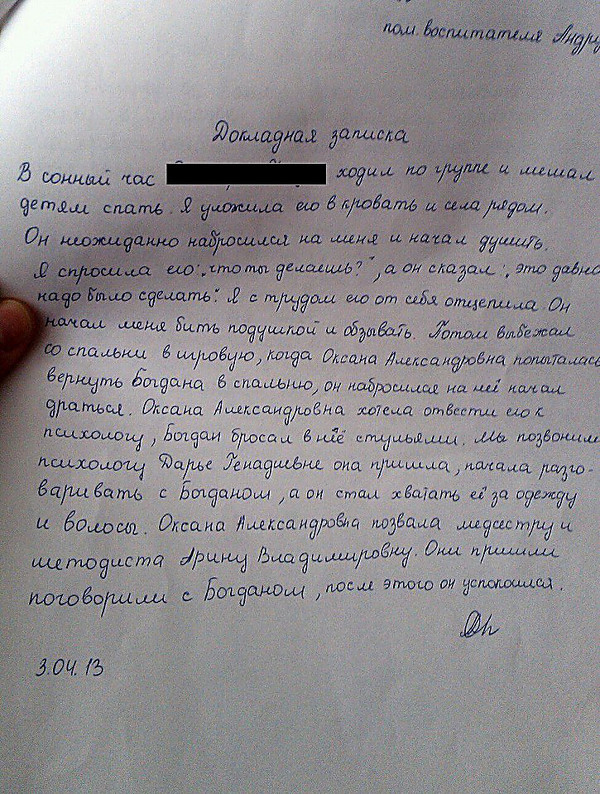 пом. воспитателя Андру
Докладная записка
В сонный час ходил по группе и мешал
детям спать. Я уложила его в кровать и села рядом.
Он неожиданно набросился на меня и начал душить.
Я спросила его: „что ты делаешь?", а он сказал: „это давно
надо было сделать". Я с трудом его от себя отцепила. Он
начал меня бить подушкой и обзывать. Потом выбежал
со спальни в игровую, когда Оксана Александровна попыталась
вернуть Богдана в спальню, он набросился на неё начал
драться. Оксана Александровна хотела отвести его к
психологу, Богдан бросал в неё стульями. Мы позвонили
психологу Дарье Генадиевне она пришла, начала разго-
варивать с Богданом, а он стал хватать её за одежду
и волосы. Оксана Александровна позвала медсестру и
методиста Арину Владимировну. Они пришли
поговорили с Богданом, после этого он успокоился.
3.04.13